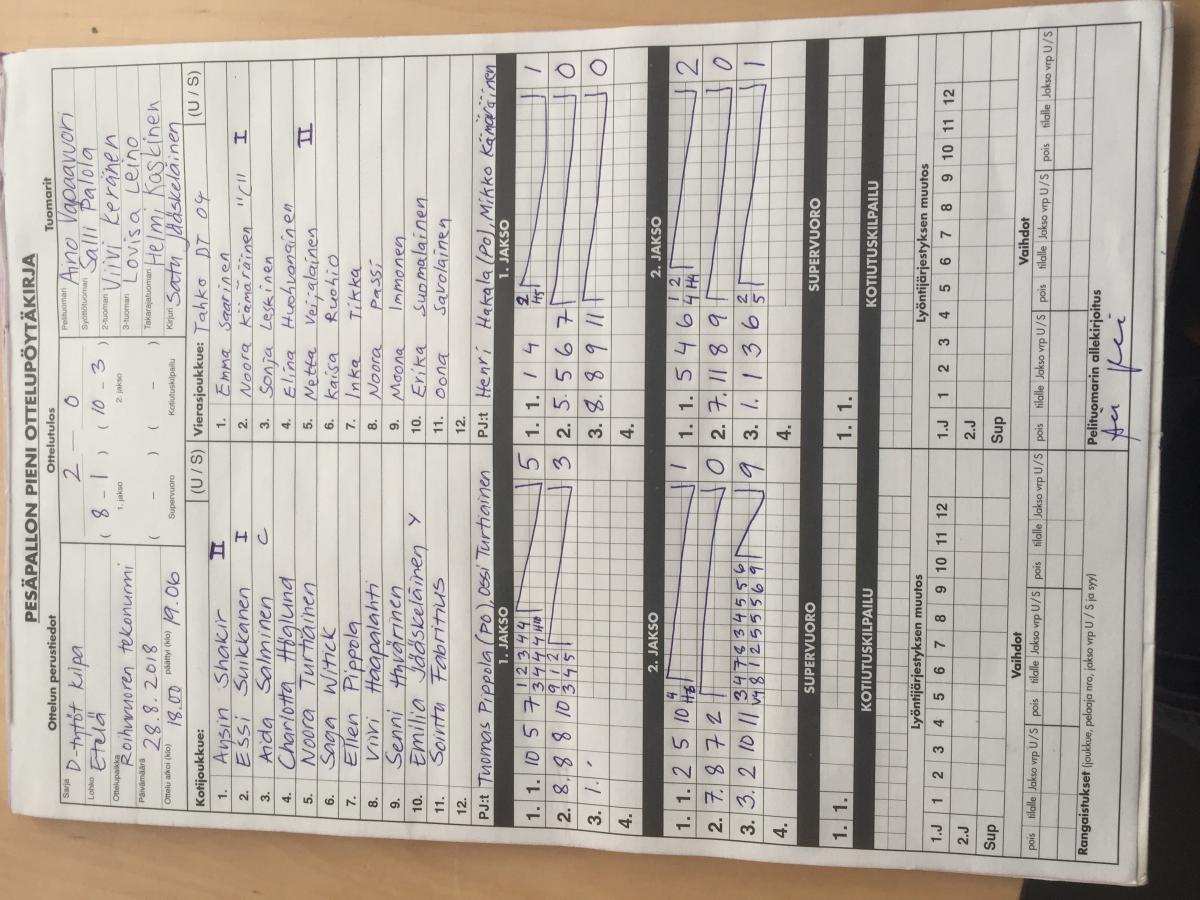 PESÄPALLON PIENI OTTELUPÖYTÄKIRJA
Ottelun perustiedot
Sarja D-tytöt kilpa
Lohko Etelä
Ottelupaikka Roihuvuoren tekonurmi
Päivämäärä 28.8.2018
Ottelu alkoi (klo) 18.00 päättyi (klo) 19.06
Ottelutulos
2 – 0
( 8 - 1 ) ( 10 - 3 )
1. jakso 2. jakso
( - ) ( - )
Supervuoro Kotiutuskilpailu
Tuomarit
Pelituomari Aino Vapaavuori
Syöttötuomari Salli Palola
2-tuomari Viivi Keränen
3-tuomari Lovisa Leino
Takarajatuomari Helmi Kaskinen
Kirjuri Satu Jääskeläinen
Kotijoukkue: (U / S)
1. Aysin Shakir II
2. Essi Suikkanen I
3. Aida Salminen C
4. Charlotta Höglund
5. Noora Turtiainen
6. Saga Witick
7. Ellen Pippola
8. Viivi Haapalahti
9. Senni Häyrinen
10. Emilia Jääskeläinen Y
11. Sointu Fabritius
12.
PJ:t Tuomas Pippola (PO), Ossi Turtiainen
Vierasjoukkue: Tahko DT 04 (U / S)
1. Emma Saarinen
2. Noora Kämäräinen "C" I
3. Sonja Leskinen
4. Elina Huohvanainen
5. Netta Veijalainen II
6. Kaisa Ruehio
7. Inka Tikka
8. Noora Passi
9. Noona Immonen
10. Erika Suomalainen
11. Oona Savolainen
12.
PJ:t Henri Hakala (PO), Mikko Kämäräinen
1. JAKSO
1. 1. 10 5 7 5
2. 8. 8 8 10 3
3. 1.
4.
1. JAKSO
1. 1. 1 4 1
2. 5. 5 6 7 0
3. 8. 8 9 11 0
4.
2. JAKSO
1. 1. 2 5 10 1
2. 7. 8 7 2 0
3. 3. 2 10 11 9
4.
2. JAKSO
1. 1. 5 4 6 2
2. 7. 11 8 9 0
3. 1. 1 3 6 1
4.
SUPERVUORO
1. 1.
SUPERVUORO
1. 1.
KOTIUTUSKILPAILU
KOTIUTUSKILPAILU
Lyöntijärjestyksen muutos
1.J 1 2 3 4 5 6 7 8 9 10 11 12
2.J
Sup
Lyöntijärjestyksen muutos
1.J 1 2 3 4 5 6 7 8 9 10 11 12
2.J
Sup
Vaihdot
pois tilalle Jakso vrp U / S pois tilalle Jakso vrp U / S pois tilalle Jakso vrp U / S
Vaihdot
pois tilalle Jakso vrp U / S pois tilalle Jakso vrp U / S pois tilalle Jakso vrp U / S
Rangaistukset (joukkue, pelaaja nro, jakso vrp U / S ja syy)
Pelituomarin allekirjoitus